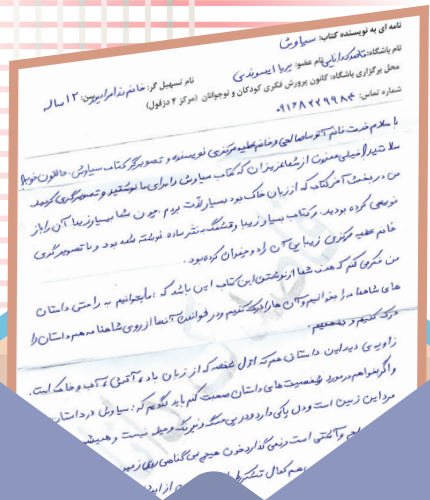 نامه ای به نویسنده کتاب: سیاوش
نام باشگاه: قاصدک دانایی نام عضو: پریا ایسوندی
نام تسهیل گر: خانم ندامرادپور سن: ۱۲ ساله
محل برگزاری باشگاه: کانون پرورش فکری کودکان و نوجوانان (مرکز ۴ دزفول)
شماره تماس: ۰۹۱۶۸۲۲۹۹۸۴
با سلام خدمت خانم آتوسا صالحی و خانم عطیه مرکزی نویسنده و تصویرگر کتاب سیاوش. حالتون خوبه؟
سلامتید؟ خیلی ممنون از شما عزیزان که کتاب سیاوش را برای ما نوشتید و تصویرگری کردید.
من در بخش آخر کتاب که از زبان خاک بود بسیار لذت بردم. چون شما بسیار زیبا آن را باز
نویسی کرده بودید. در کتاب بسیار زیبا و قشنگ به نثر ساده نوشته شده بود و با تصویرگری
خانم عطیه مرکزی زیبایی آن را دوچندان کرده بود.
من فکر می کنم که هدف شما از نوشتن این کتاب این باشد که ما بتوانیم به راحتی داستان
های شاهنامه را بخوانیم و آن ها را درک کنیم و در خواندن آنها از روی شاهنامه هم داستان را
درک کنیم و بفهمیم.
زاویه ی دید این داستان هم که اول شخصه که از زبان باد، آتش، آب و خاک است.
و اگر بخواهم در مورد شخصیت های داستان صحبت کنم باید بگویم که: سیاوش در داستان
مرد این زمین است و دل پاکی دارد و در پی جنگ و نیرنگ و حیله نیست و همیشه
و آشتی است و نمی گذارد خون هیچ بی گناهی روی زمین
هم کمال تشکر را از